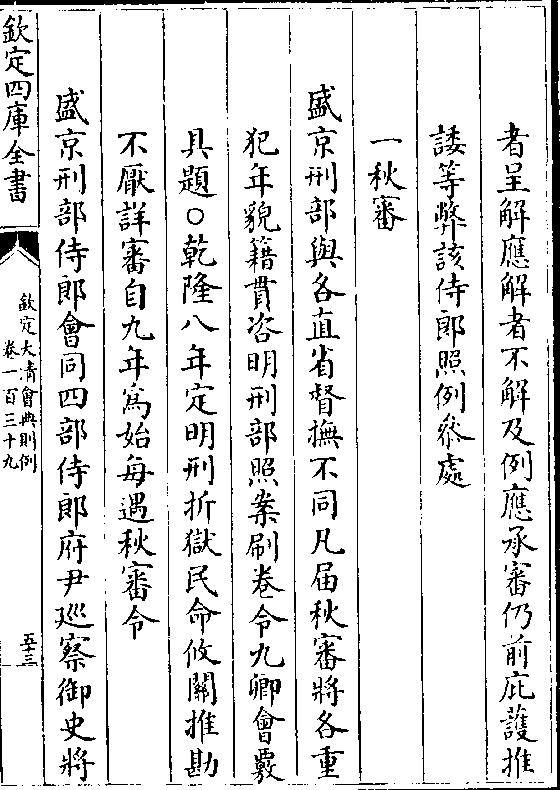 者呈解應解者不解及例應承審仍前庇護推
諉等弊該侍郎照例叅處
一秋審
盛京刑部與各直省督撫不同凡届秋審將各重
犯年貌籍貫咨明刑部照案刷卷令九卿會覈
具題○乾隆八年定明刑折獄民命攸關推勘
不厭詳審自九年為始每遇秋審令
盛京刑部侍郎會同四部侍郎府尹廵察御史將
欽定四庫全書
欽定大清會典則例
卷一百三十九
五十三